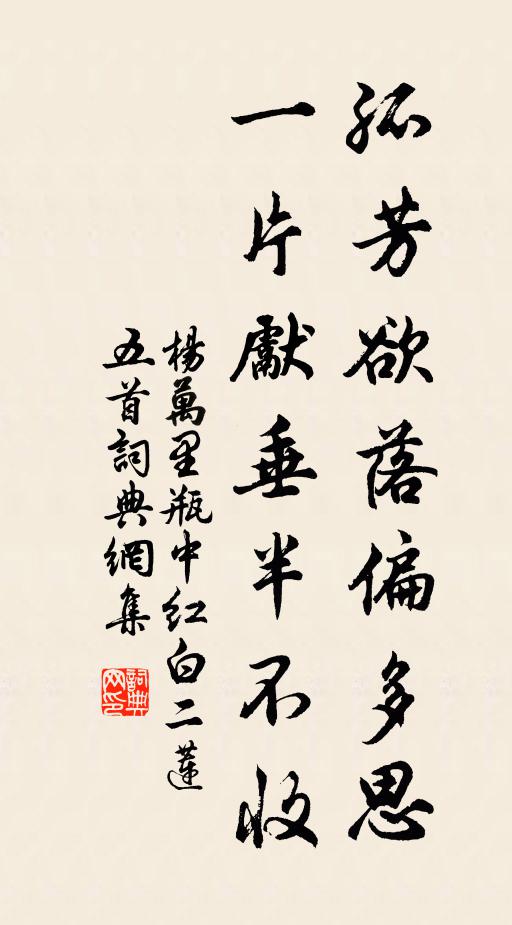 孤芳欲落偏多思
一片獻垂半不收
楊萬里瓶中红白二蓮
五首詞典網集
詞典
网印